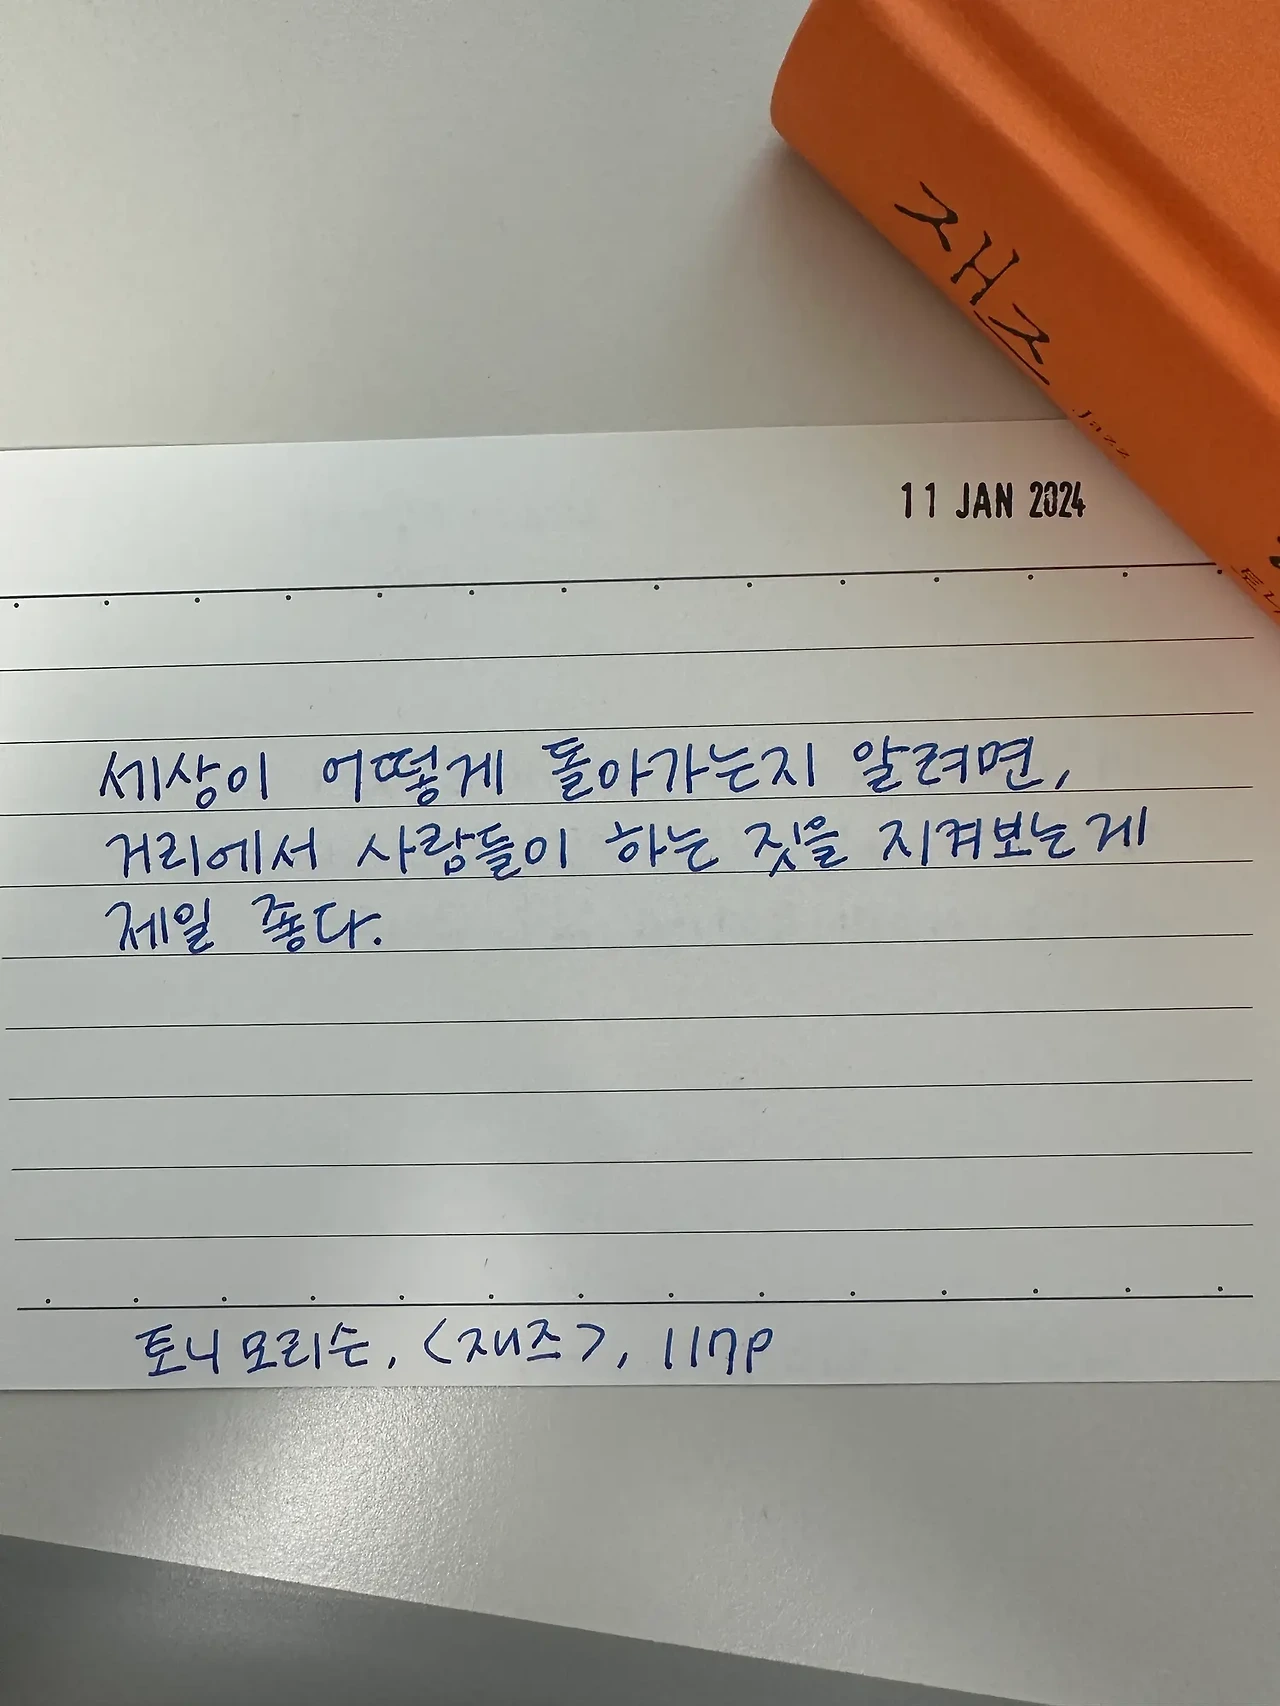 재즈
Jazz
11 JAN 2024
세상이 어떻게 돌아가는지 알려면,
거리에서 사람들이 하는 짓을 지켜보는게
제일 좋다.
토니 모리슨, <재즈>, 117p